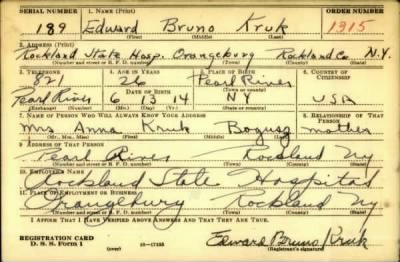 SERIAL NUMBER 1. NAME (Print) ORDER NUMBER
189 Edward Bruno Kruk 1315
(First) (Middle) (Last)
2. ADDRESS (Print)
Rockland State Hosp. Orangeburg Rockland Co. N.Y.
(Number and street or R. F. D. number) (Town) (County) (State)
3. TELEPHONE 4. AGE IN YEARS 5. PLACE OF BIRTH 6. COUNTRY OF CITIZENSHIP
821 26 Pearl River
DATE OF BIRTH (Town or county)
Pearl River 6 13 14 NY USA
(Exchange) (Number) (Mo.) (Day) (Yr.) (State or country)
7. NAME OF PERSON WHO WILL ALWAYS KNOW YOUR ADDRESS 8. RELATIONSHIP OF THAT PERSON
Mrs. Anna Kruk Bogusz mother
(Mr., Mrs., Miss) (First) (Middle) (Last)
9. ADDRESS OF THAT PERSON
Pearl River Rockland Ny
(Number and street or R. F. D. number) (Town) (County) (State)
10. EMPLOYER'S NAME
Rockland State Hospital
11. PLACE OF EMPLOYMENT OR BUSINESS
Orangeburg Rockland Ny
(Number and street or R. F. D. number) (Town) (County) (State)
I AFFIRM THAT I HAVE VERIFIED ABOVE ANSWERS AND THAT THEY ARE TRUE.
REGISTRATION CARD
D. S. S. Form 1 16—17105 Edward Bruno Kruk
(Registrant's signature)